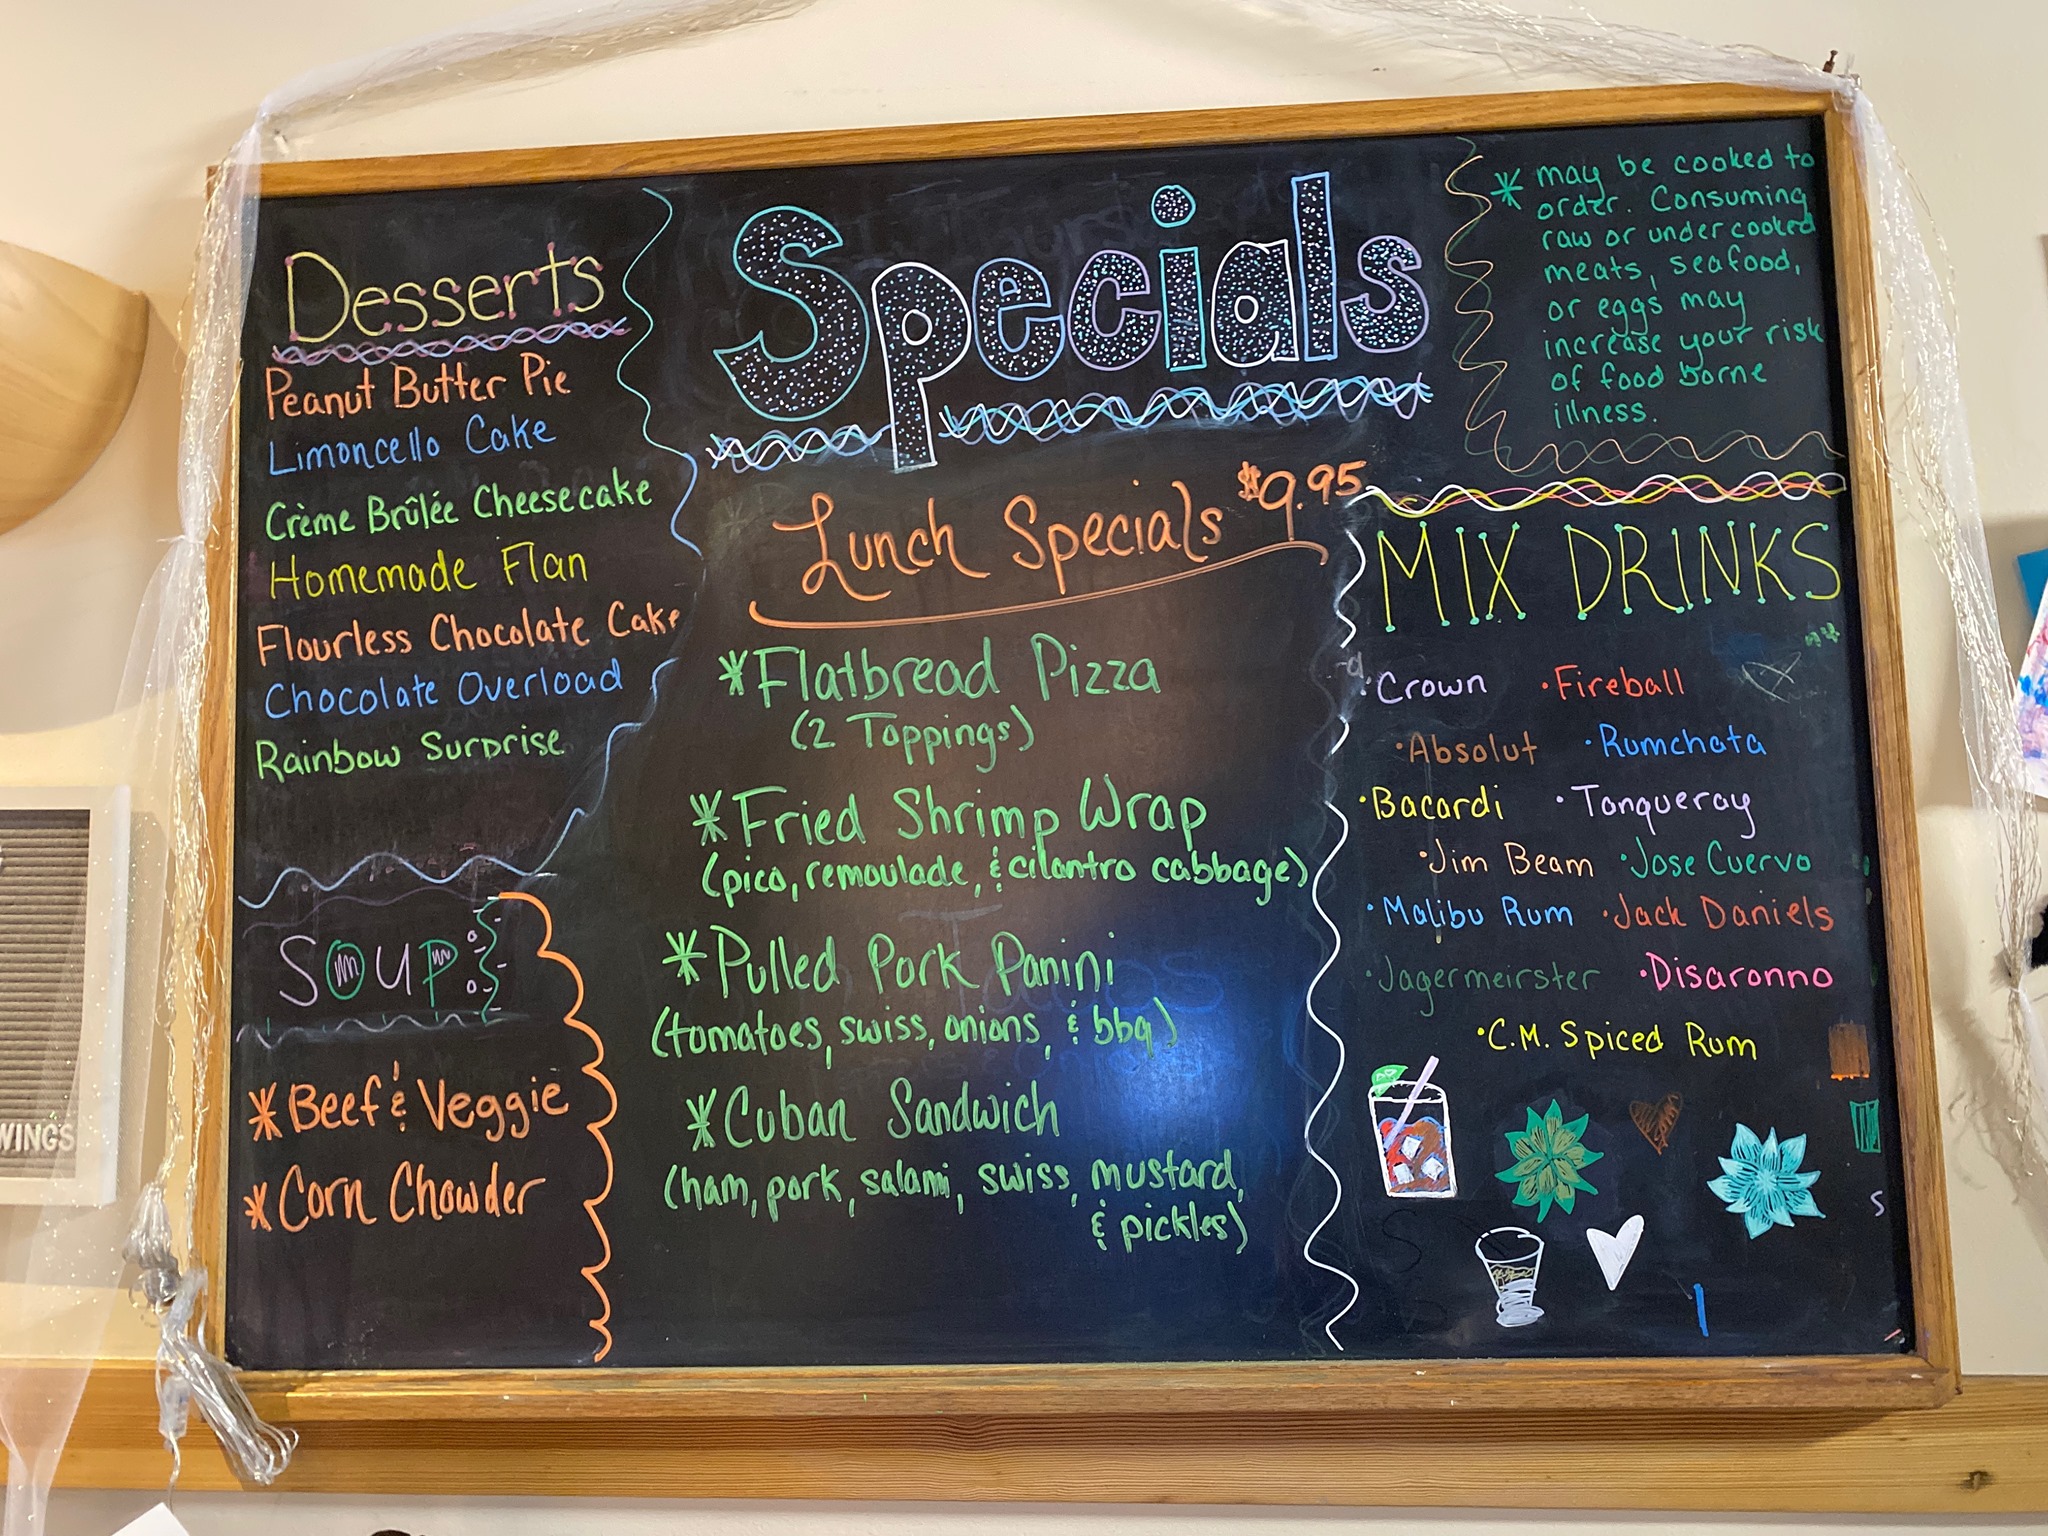 Desserts
Peanut Butter Pie
Limoncello Cake
Crème Brûlée Cheesecake
Homemade Flan
Flourless Chocolate Cake
Chocolate Overload
Rainbow Surprise
Soup
* Beef & Veggie
* Corn Chowder
Specials
Lunch Specials $9.95
* Flatbread Pizza
(2 Toppings)
* Fried Shrimp Wrap
(pico, remoulade, & cilantro cabbage)
* Pulled Pork Panini
(tomatoes, swiss, onions, & bbq)
* Cuban Sandwich
(ham, pork, salami, swiss, mustard,
& pickles)
* may be cooked to
order. Consuming
raw or under cooked
meats, seafood,
or eggs may
increase your risk
of food borne
illness.
MIX DRINKS
·Crown ·Fireball
·Absolut ·Rumchata
·Bacardi ·Tanqueray
·Jim Beam ·Jose Cuervo
·Malibu Rum ·Jack Daniels
·Jagermeirster ·Disaronno
·C.M. Spiced Rum
WINGS